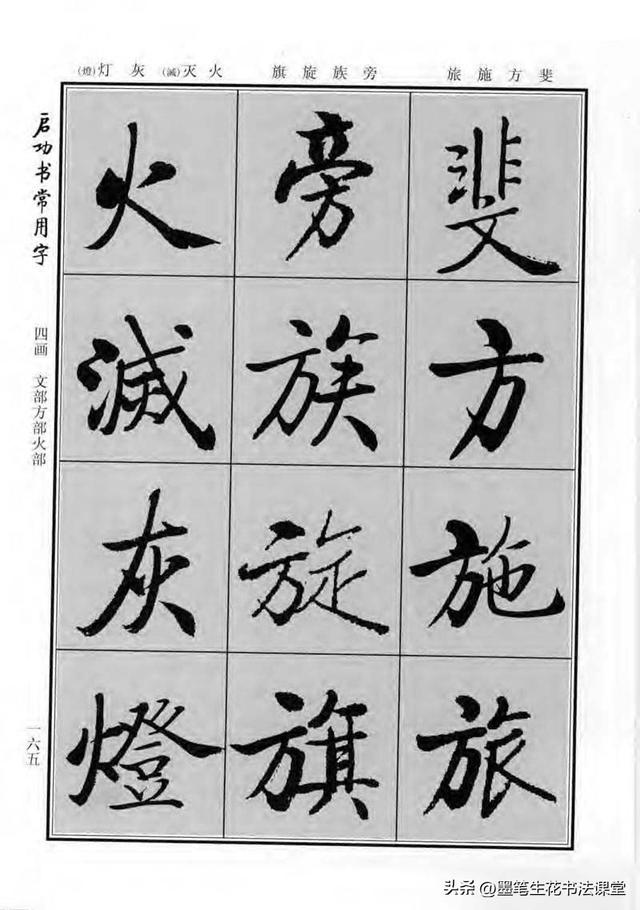 斐方施旅
旁族旋旗
火灭(滅)灰灯(燈)
斐
方
施
旅
旁
族
旋
旗
火
滅
灰
燈
启功书常用字
四画 文部方部火部
一六五
头条 @墨笔生花书法课堂